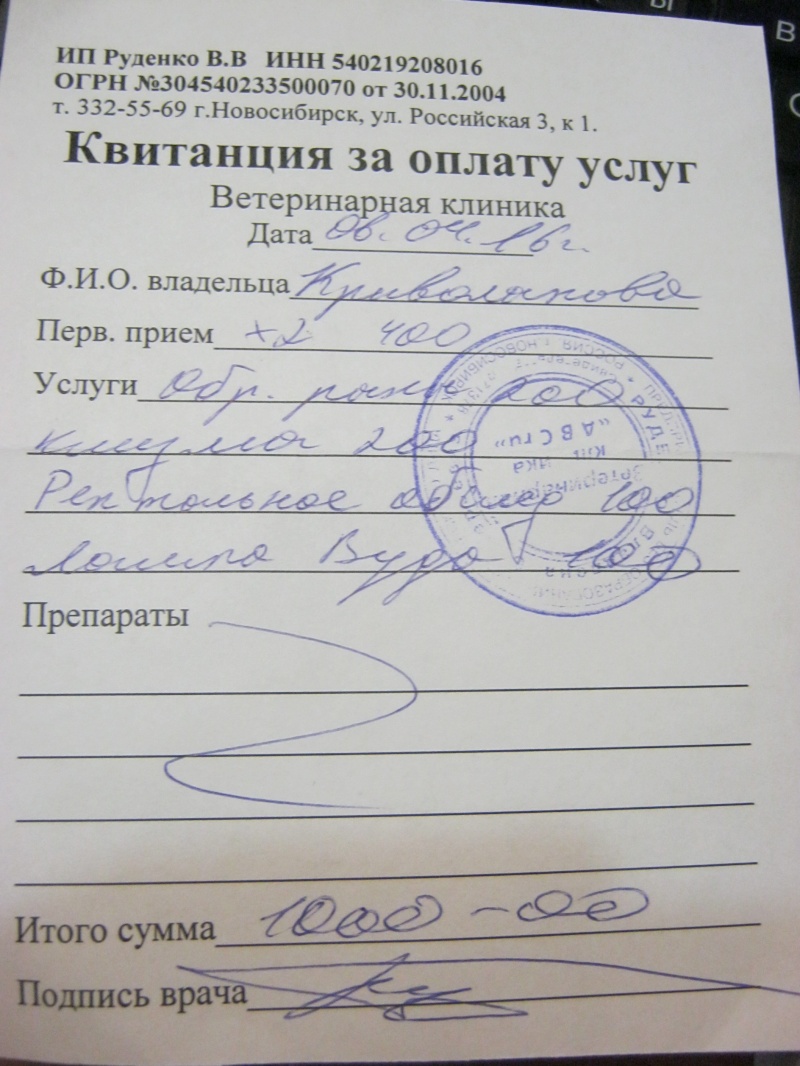 ИП Руденко В.В ИНН 540219208016
ОГРН №304540233500070 от 30.11.2004
т. 332-55-69 г.Новосибирск, ул. Российская 3, к 1.
Квитанция за оплату услуг
Ветеринарная клиника
Дата 06.04.16г.
Ф.И.О. владельца
Перв. прием х2 400
Услуги Обр. раны 200
клизма 200
100
Лампа Вуда 100
Препараты
Итого сумма 1000-00
Подпись врача